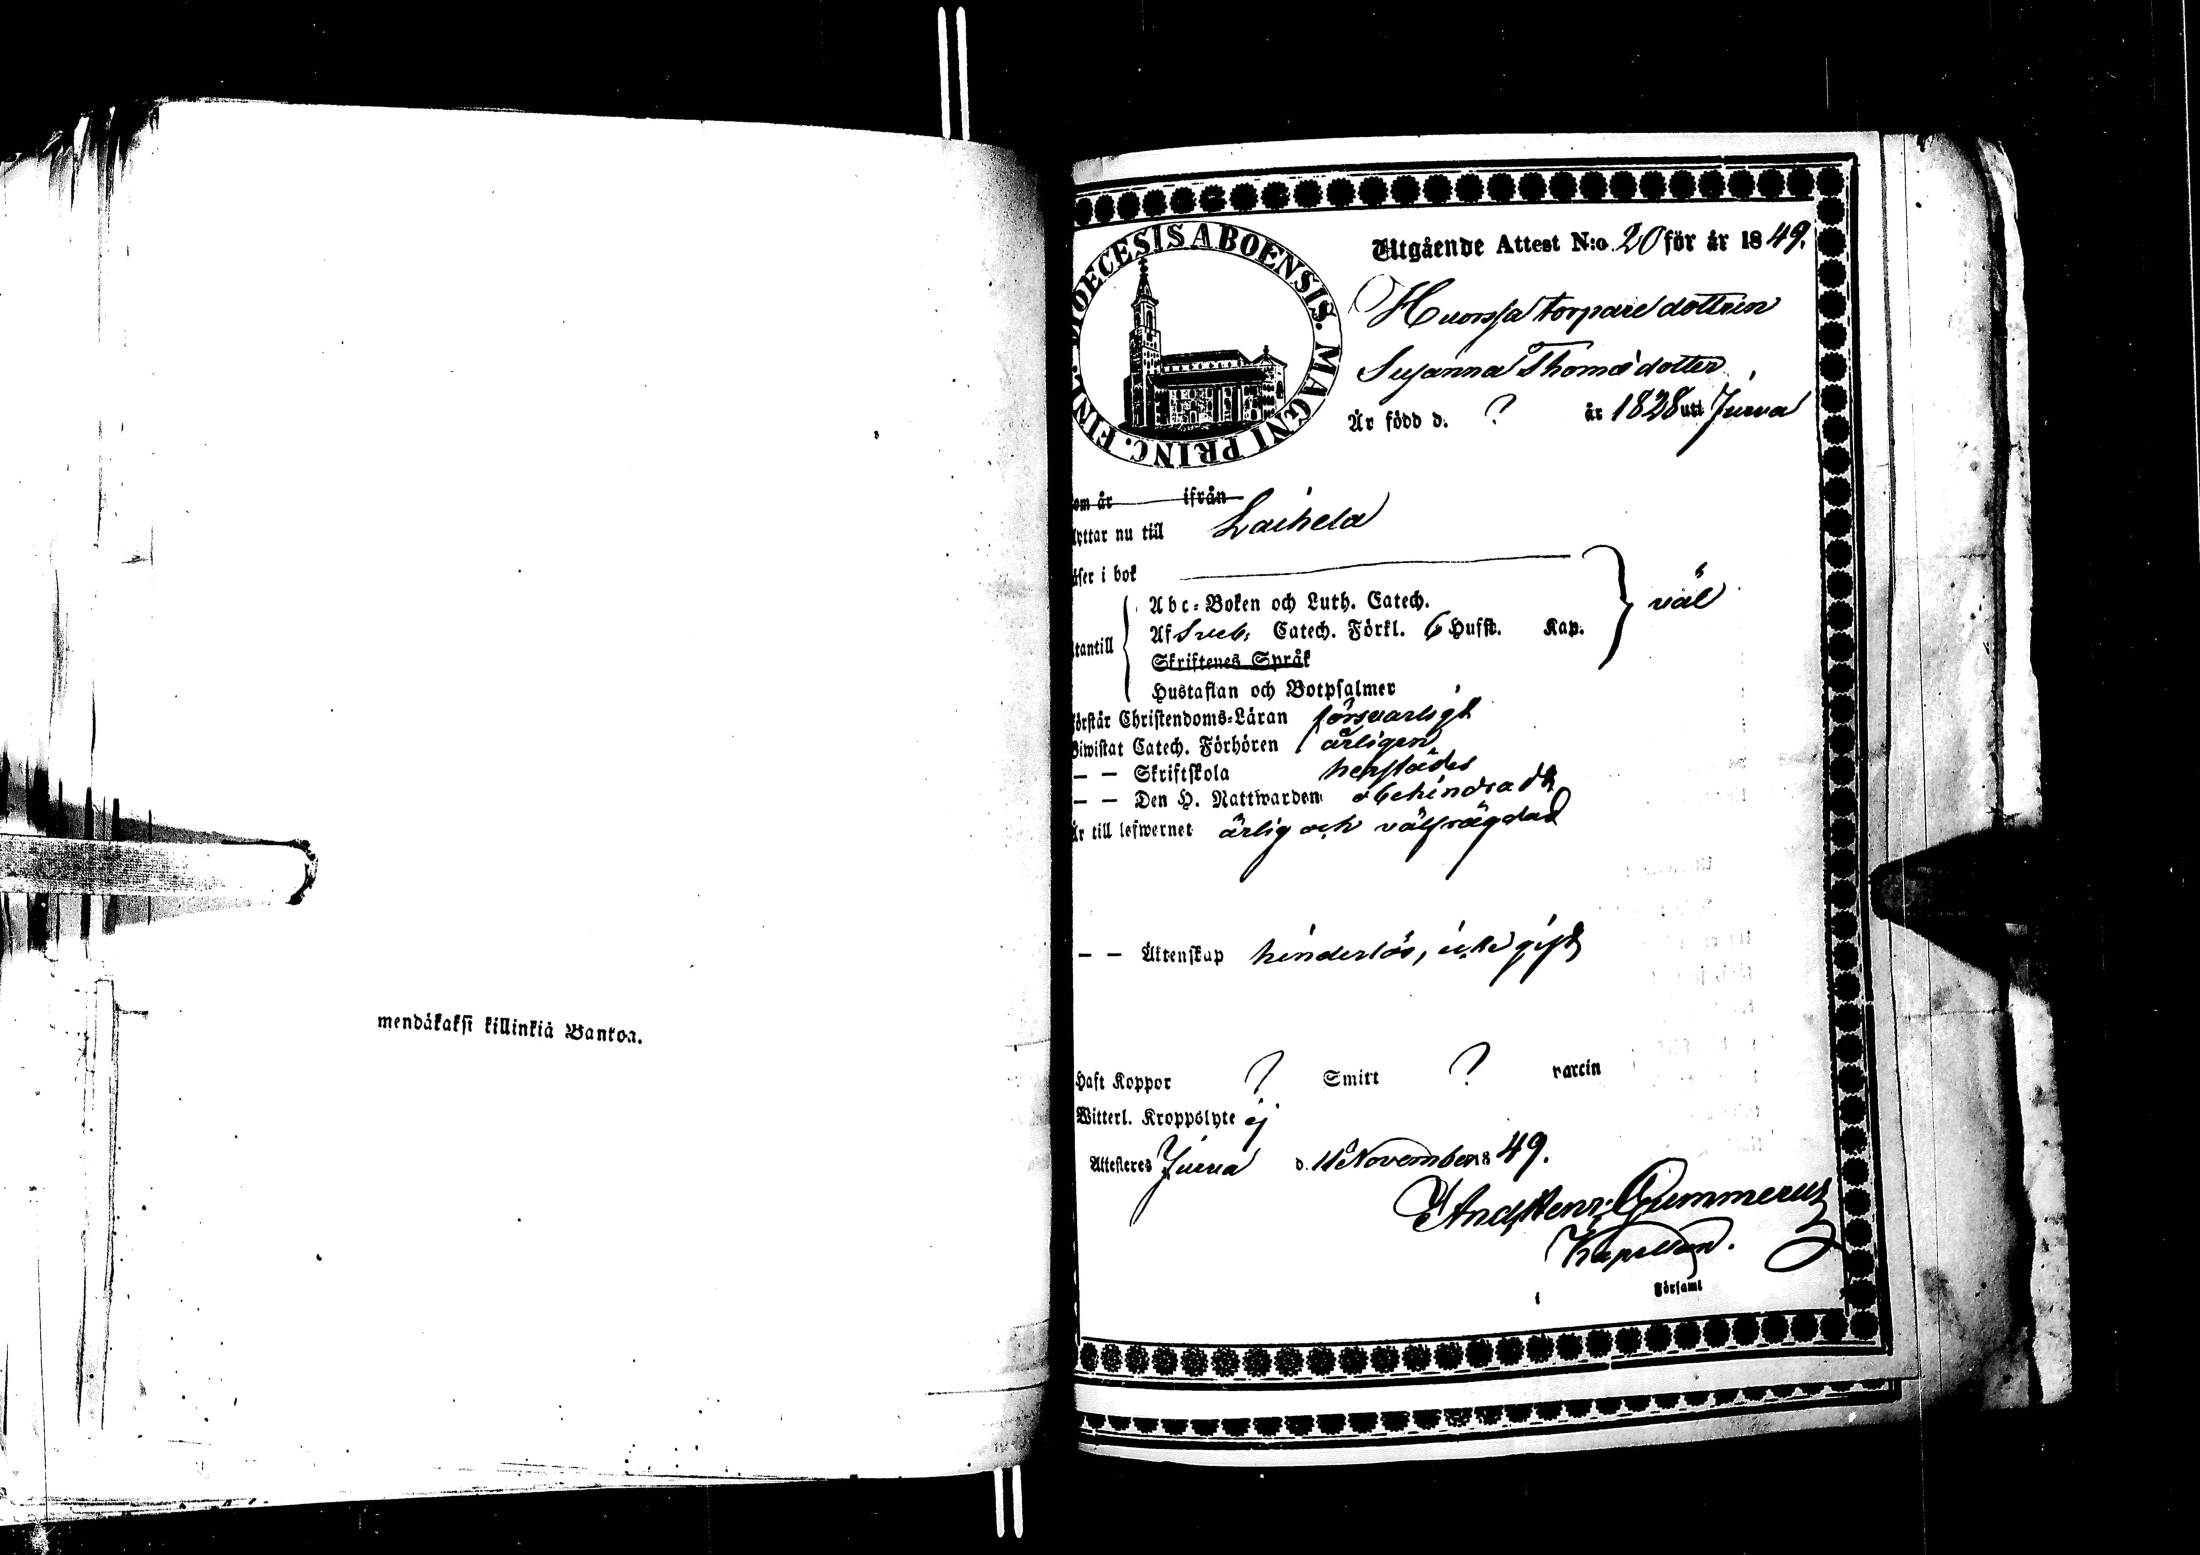 mendåkaksi killinkiä Bankoa.
DIOECESIS ABOENSIS. MAGNI PRINC. FINL.
Utgående Attest N:o 20 för år 1849.
Huorssa torpare dottren
Susanna Thomasdotter
Är född d. ? år 1828 uti Jurva
om år ifrån
lyttar nu till Laihela
äser i bok
tantill
Abc-Boken och Luth. Catech.
Af Sveb. Catech. Förkl. 6 Hufst. Kap.
väl
Skriftenes Språk
Hustaflan och Botpsalmer
örstår Christendoms-Läran försvarligt
Biwistat Catech. Förhören årligen
— — Skriftskola härstädes
— — Den H. Nattwarden obehindradt
Är till lefwernet ärlig och välfrägdad
— — Äktenskap hinderlös, icke gift
Haft Koppor ? Smitt ? vaccin
Witterl. Kroppslyte ej
Attesteres Jurva d. 11 November 1849.
And. Henr. Gummerus
Kapellan.
i Församl